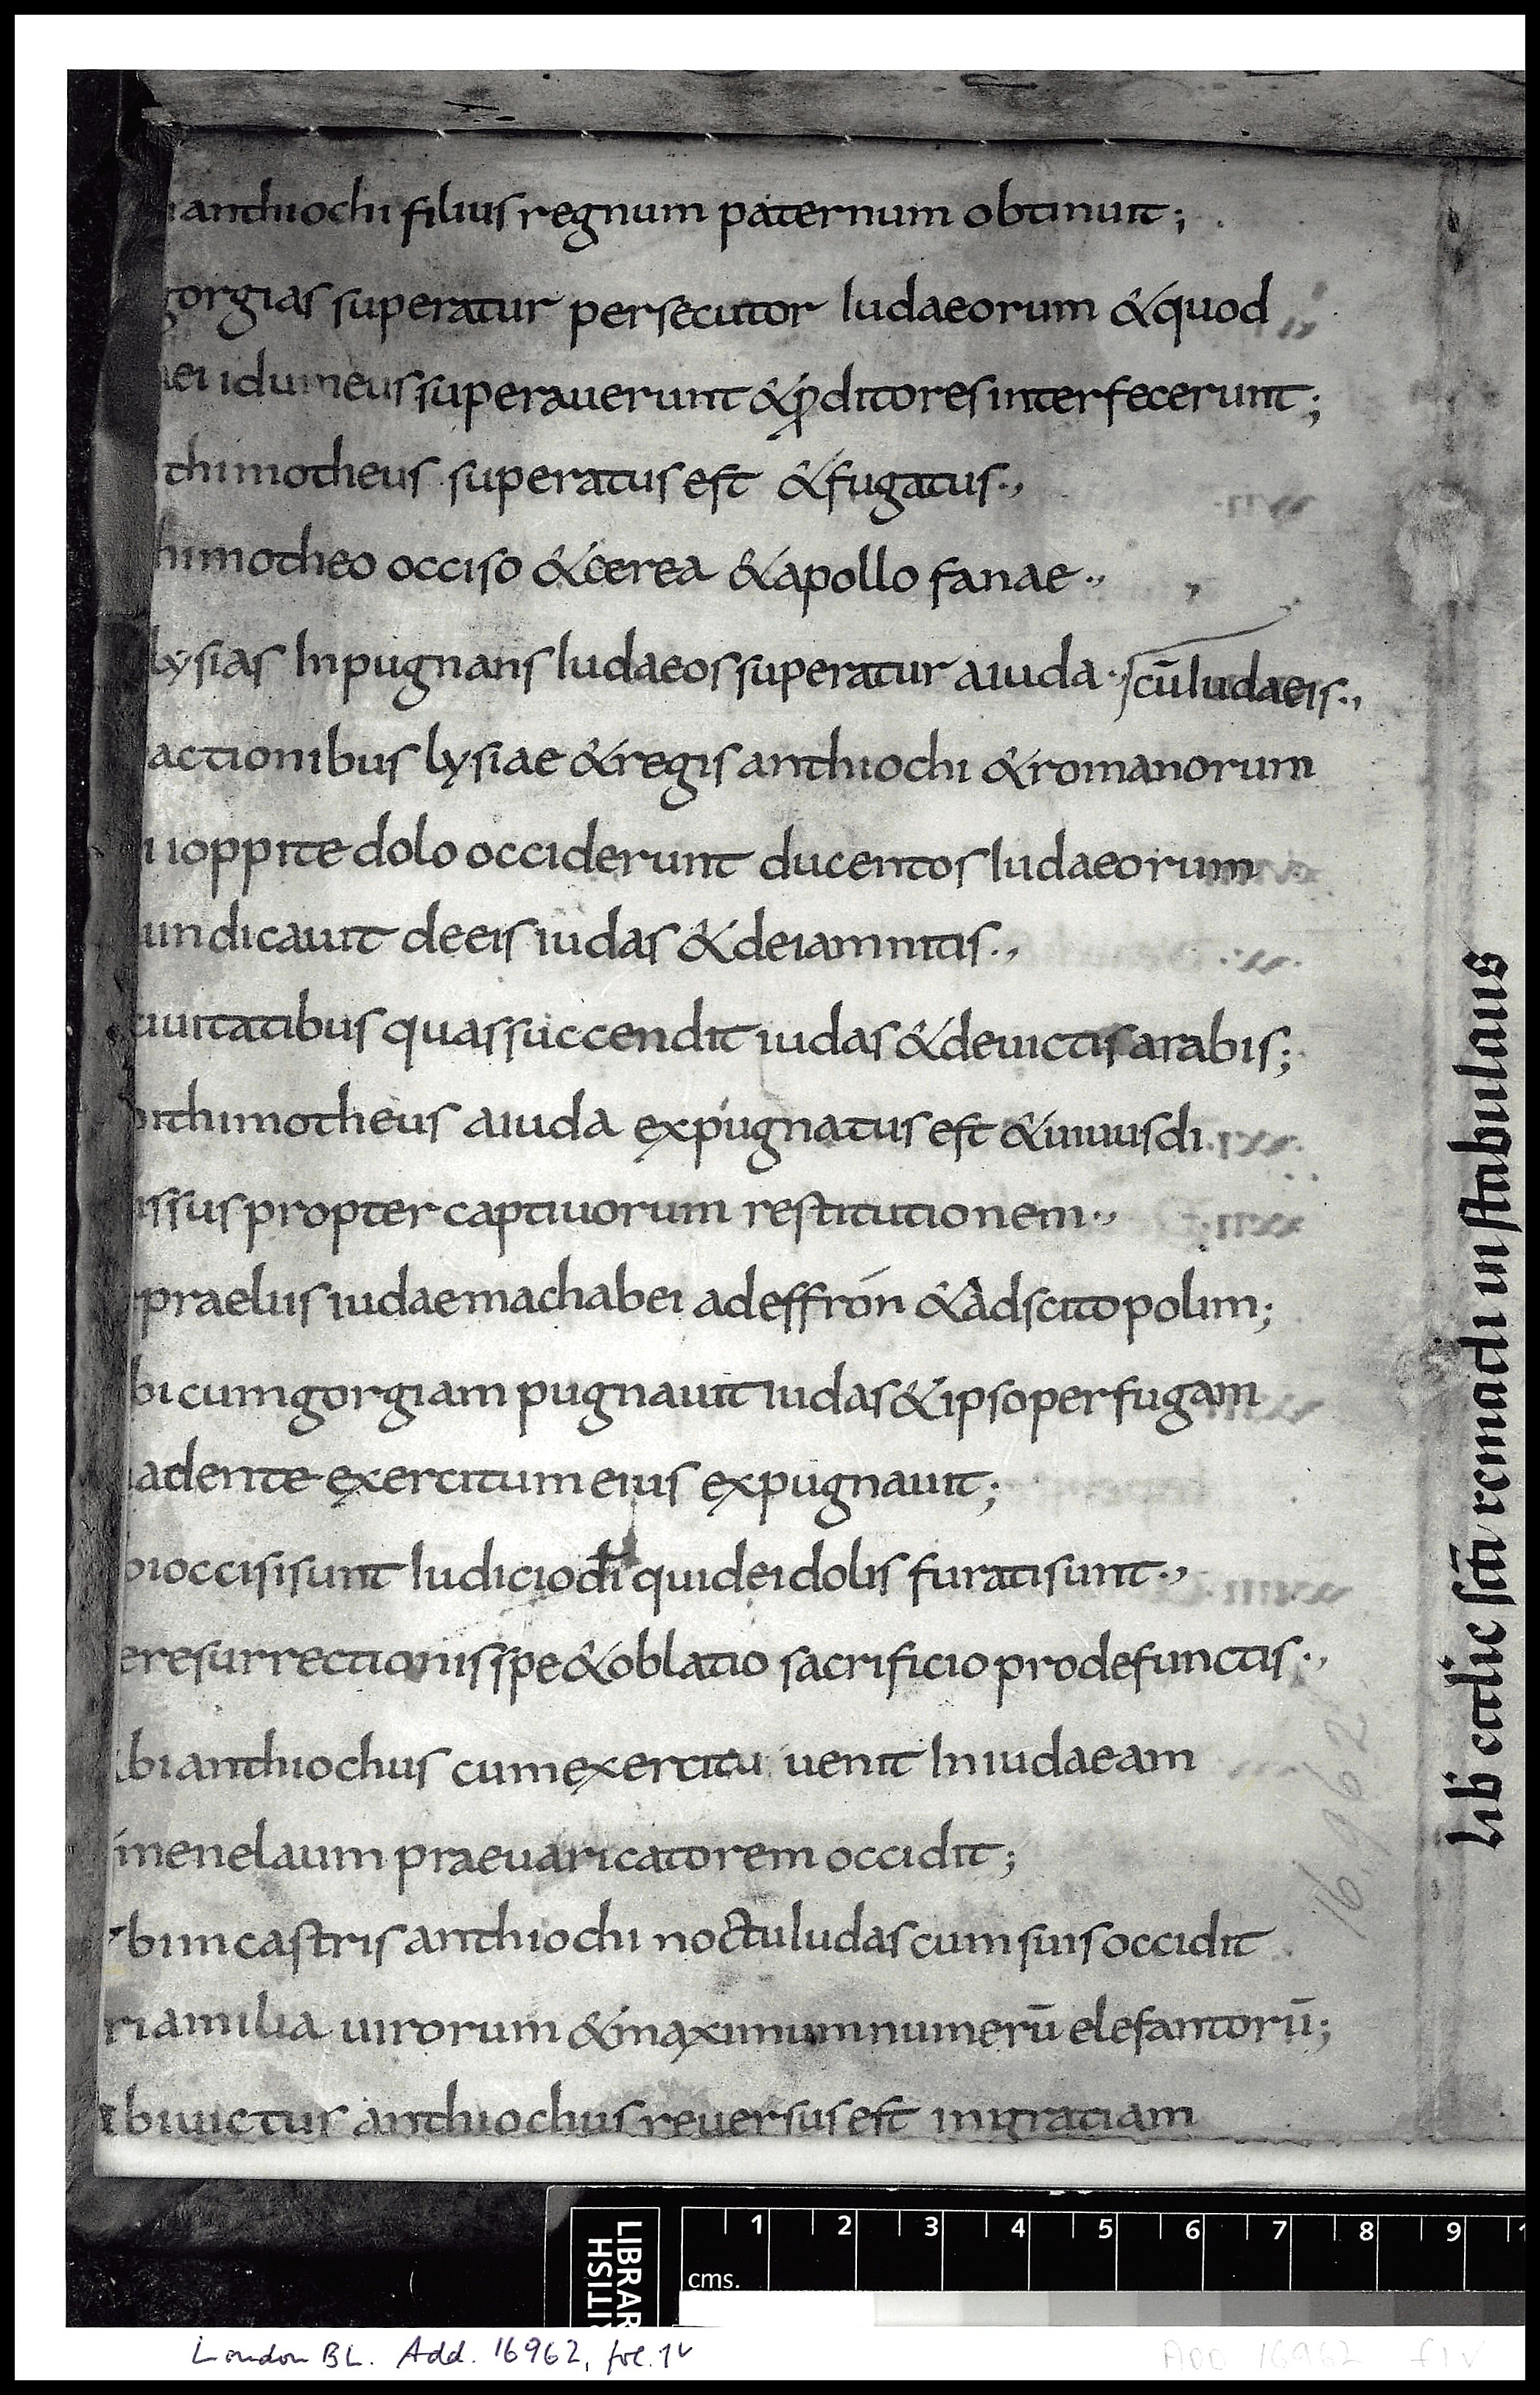 anthiochi filius regnum paternum obtinuit;
gorgias superatur persecutor Iudaeorum & quod
aei idumeus superauerunt & p̱ditores interfecerunt;
thimotheus superatus est & fugatus.,
himotheo occiso & cerea & apollo fanae.,
lysias Inpugnans Iudaeos superatur aiuda., cū Iudaeis.,
actionibus lysiae & regis anthiochi & romanorum
i ioppite dolo occiderunt ducentos Iudaeorum
uindicauit deeis iudas & deiamnitis.,
ciuitatibus quas succendit iudas & deuictis arabis;
bithimotheus aiuda expugnatus est & uiuus di
issus propter captiuorum restitutionem.,
praeliis iudae machabei ad effrón & ad scitopolim;
bi cum gorgiam pugnauit iudas & ipso per fugam
adente exercitum eius expugnauit;
bi occisi sunt Iudicio dī qui de idolis furati sunt.,
e resurrectionis spe & oblatio sacrificio pro defunctis.,
bi anthiochus cum exercitu uenit In iudaeam
menelaum praeuaricatorem occidit;
bi in castris anthiochi noctu Iudas cum suis occidit
ria milia uirorum & maximum numerū elefantorū;
bi uictur anthiochus reuersus est in gratiam
lib eccliē sc̄i remacli in stabulaus
16962
LIBRAR
ITISH
cms.
1 2 3 4 5 6 7 8 9
London BL. Add. 16962, fol. 1v
ADD 16962 f1v